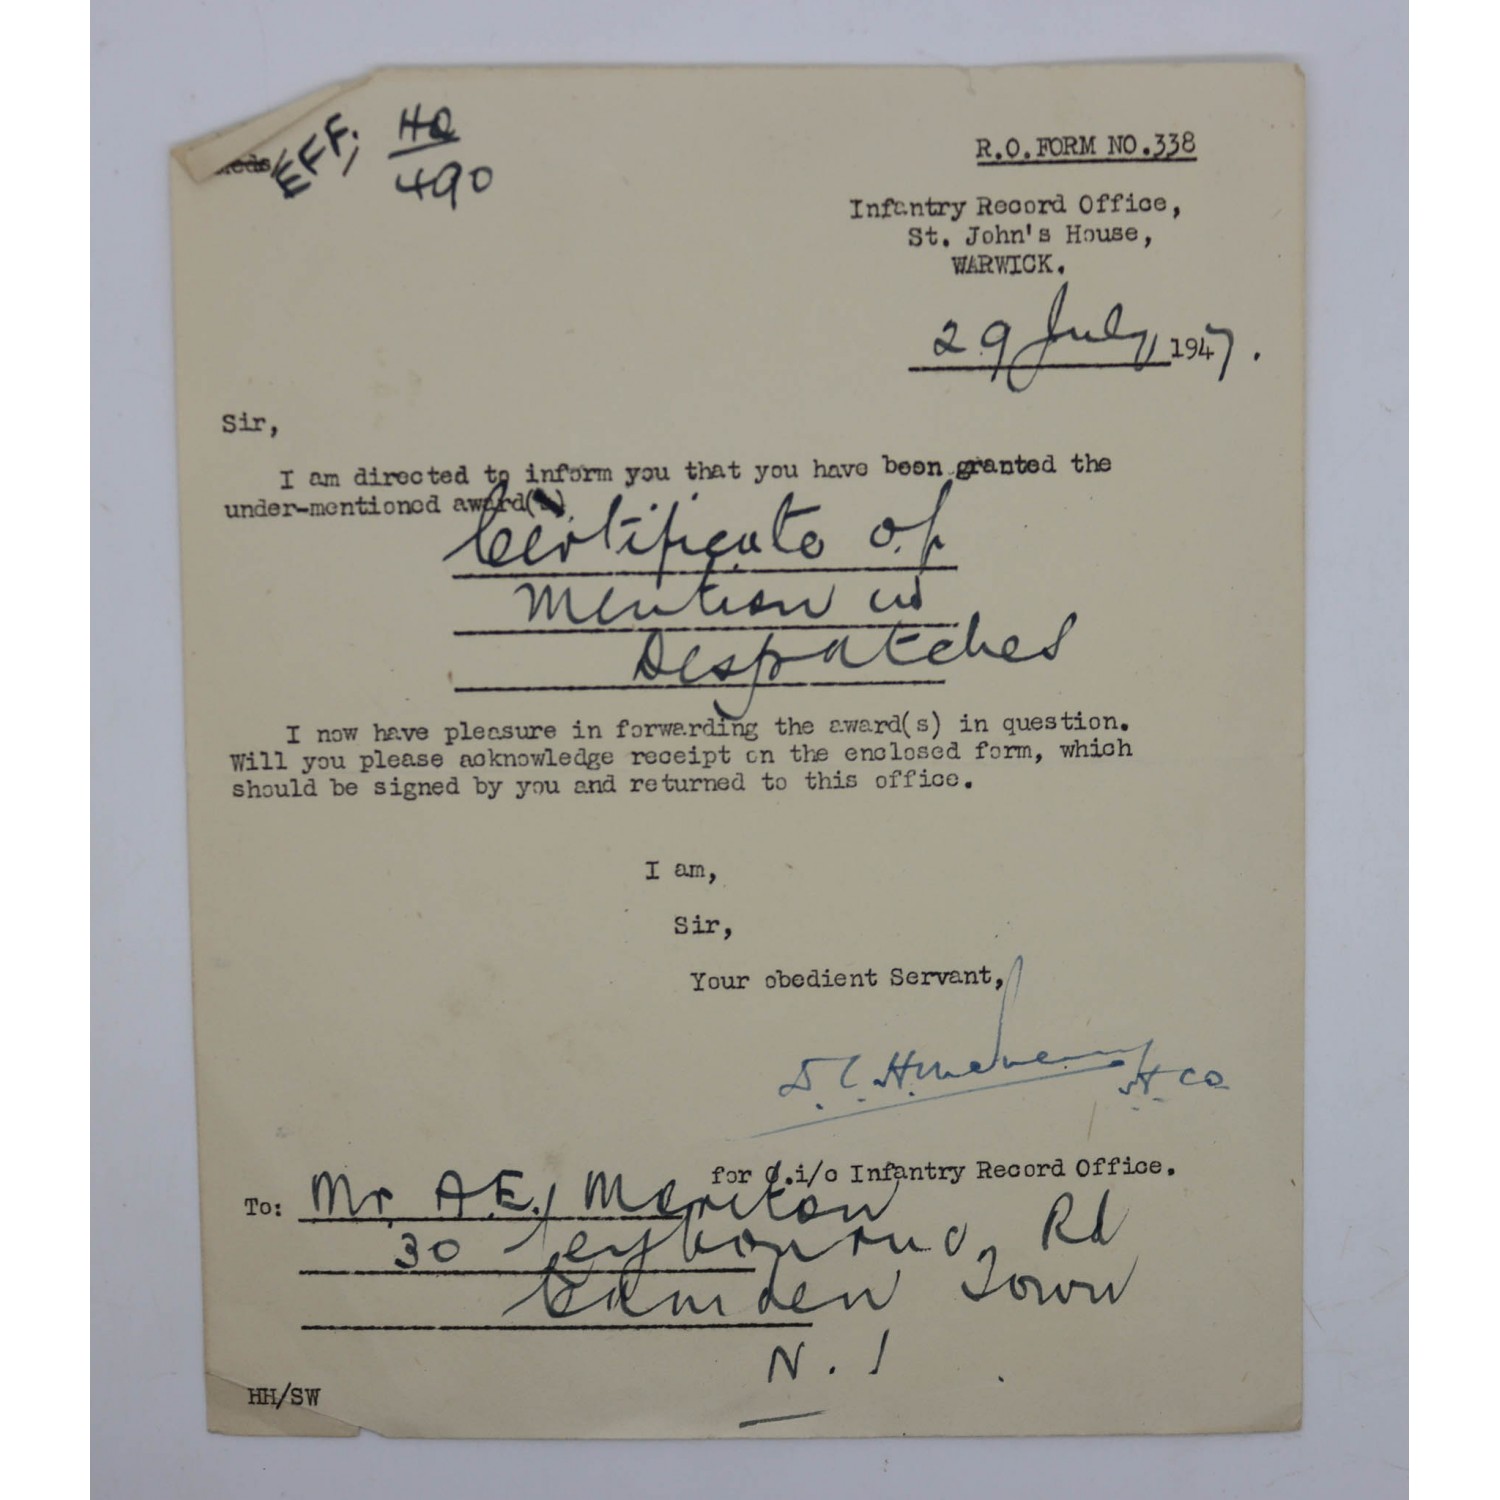 EFF. HQ
490
R.O.FORM NO.338
Infantry Record Office,
St. John's House,
WARWICK.
29 July, 1947.
Sir,
I am directed to inform you that you have been granted the
under-mentioned award(s)
Certificate of
Mention in
Despatches
I now have pleasure in forwarding the award(s) in question.
Will you please acknowledge receipt on the enclosed form, which
should be signed by you and returned to this office.
I am,
Sir,
Your obedient Servant,
for O.i/c Infantry Record Office.
To: Mr A.E. Moriton
30 Leybourne Rd
Camden Town
N.1
HH/SW